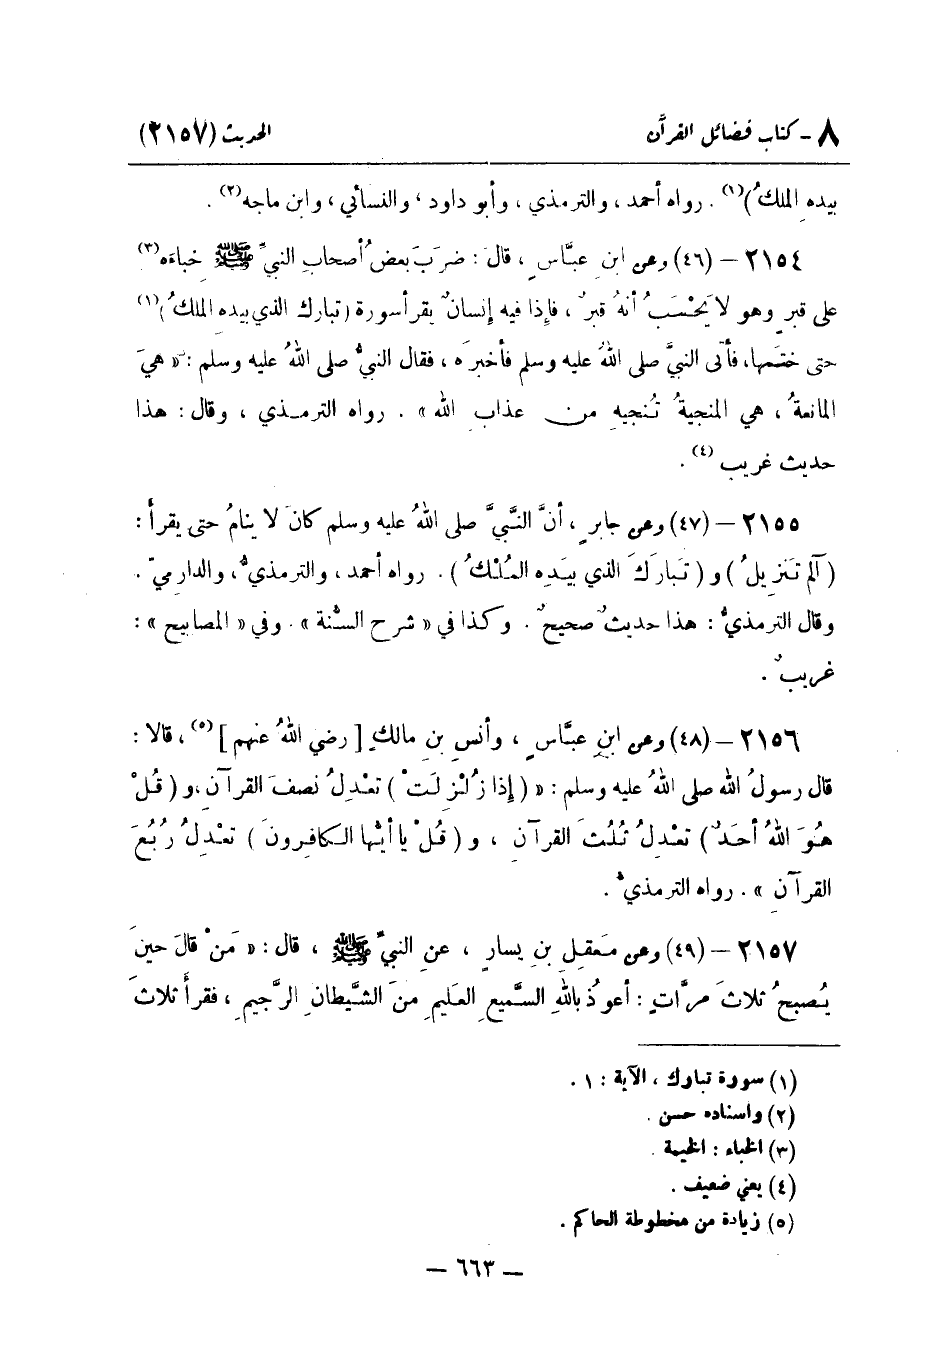 ٨ - كتاب فضائل القرآن الحديث (٢١٥٧)
بيده الملكُ)(١) . رواه أحمد ، والترمذي ، وأبو داود ، والنسائي ، وابن ماجه(٢) .
٢١٥٤ – (٤٦) وعن ابنِ عبَّاسٍ ، قال : ضرَبَ بعضُ أصحابِ النبيِّ ﷺ خباءَه(٣)
على قبرٍ وهو لا يَحْسَبُ أنهُ قبرٌ ، فإذا فيه إنسانٌ يقرأ سورة (تبارك الذي بيده الملكُ)(١)
حتى ختمها، فأتى النبيَّ صلى اللهُ عليه وسلم فأخبرَه ، فقال النبيُّ صلى اللهُ عليه وسلم : « هيَ
المانعةُ ، هي المنجيةُ تُنجيهِ من عذاب الله » . رواه الترمـذي ، وقال : هذا
حديث غريب (٤) .
٢١٥٥ – (٤٧) وعن جابرٍ ، أنَّ النَّبيَّ صلى اللهُ عليه وسلم كانَ لا ينامُ حتى يقرأ :
( آلم تَنزِيلُ ) و ( تَبارَكَ الذي بيَدِه المُلْكُ ) . رواه أحمد ، والترمذيُّ ، والدارميّ .
وقال الترمذيُّ : هذا حديثٌ صحيحٌ . وكذا في « شرح السُّنة » . وفي « المصابيح » :
غريبٌ .
٢١٥٦ – (٤٨) وعن ابنِ عبَّاسٍ ، وأنسِ بنِ مالكٍ [ رضي اللهُ عنهم ](٥) ، قالا :
قال رسولُ الله صلى اللهُ عليه وسلم : « ( إذا زُلْزِلَتْ ) تعْدِلُ نصفَ القرآنِ، و ( قُلْ
هُوَ اللهُ أحَدٌ ) تعْدلُ ثُلُثَ القرآنِ ، و ( قُلْ يا أيُّها الكافِرونَ ) تعْدِلُ رُبُعَ
القرآنِ » . رواه الترمذيُّ .
٢١٥٧ – (٤٩) وعن مَعقِلِ بنِ يسارٍ ، عنِ النبيِّ ﷺ ، قال : « مَنْ قالَ حينَ
يُصبحُ ثلاثَ مرَّاتٍ : أعوذُ باللهِ السَّميعِ العَليمِ منَ الشَّيطانِ الرَّجيمِ ، فقرأَ ثلاثَ
(١) سورة تبارك ، الآية : ١ .
(٢) واسناده حسن .
(٣) الخباء : الخيمة .
(٤) يعني ضعيف .
(٥) زيادة من مخطوطة الحاكم .
– ٦٦٣ –